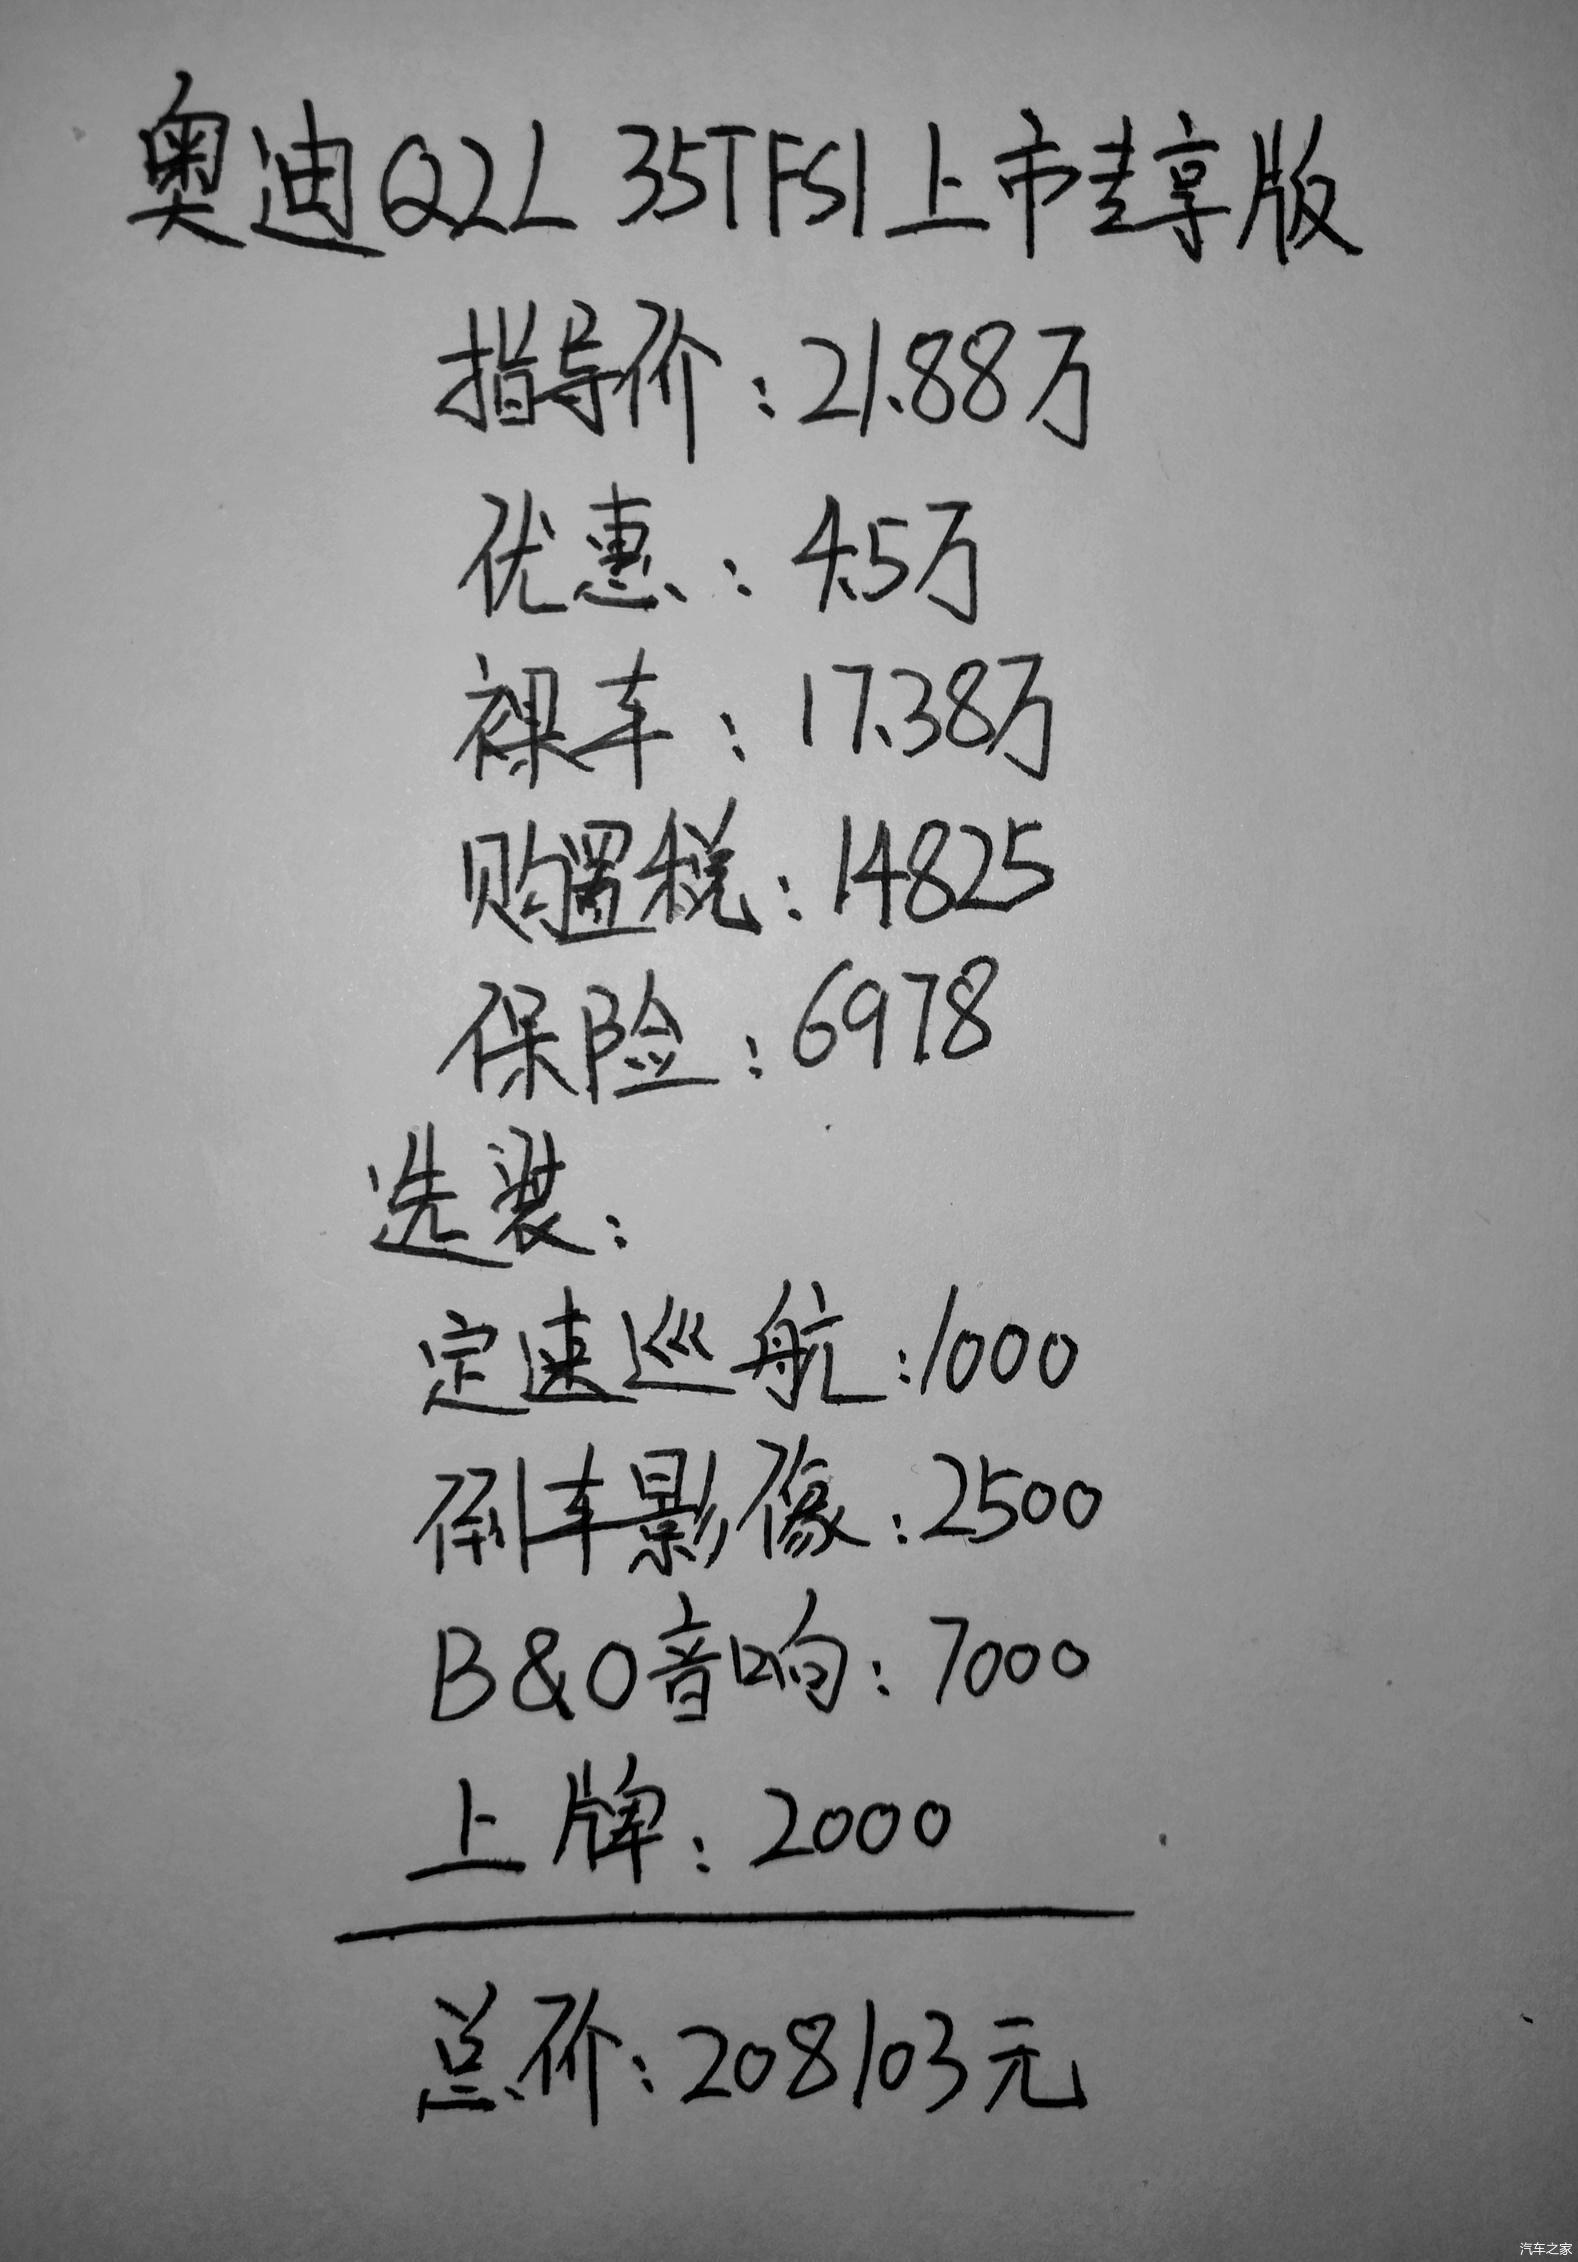 奥迪Q2L 35TFSI上市专享版
指导价：21.88万
优惠：4.5万
裸车：17.38万
购置税：14825
保险：6978
选装：
定速巡航：1000
倒车影像：2500
B&O音响：7000
上牌：2000
总价：208103元
汽车之家